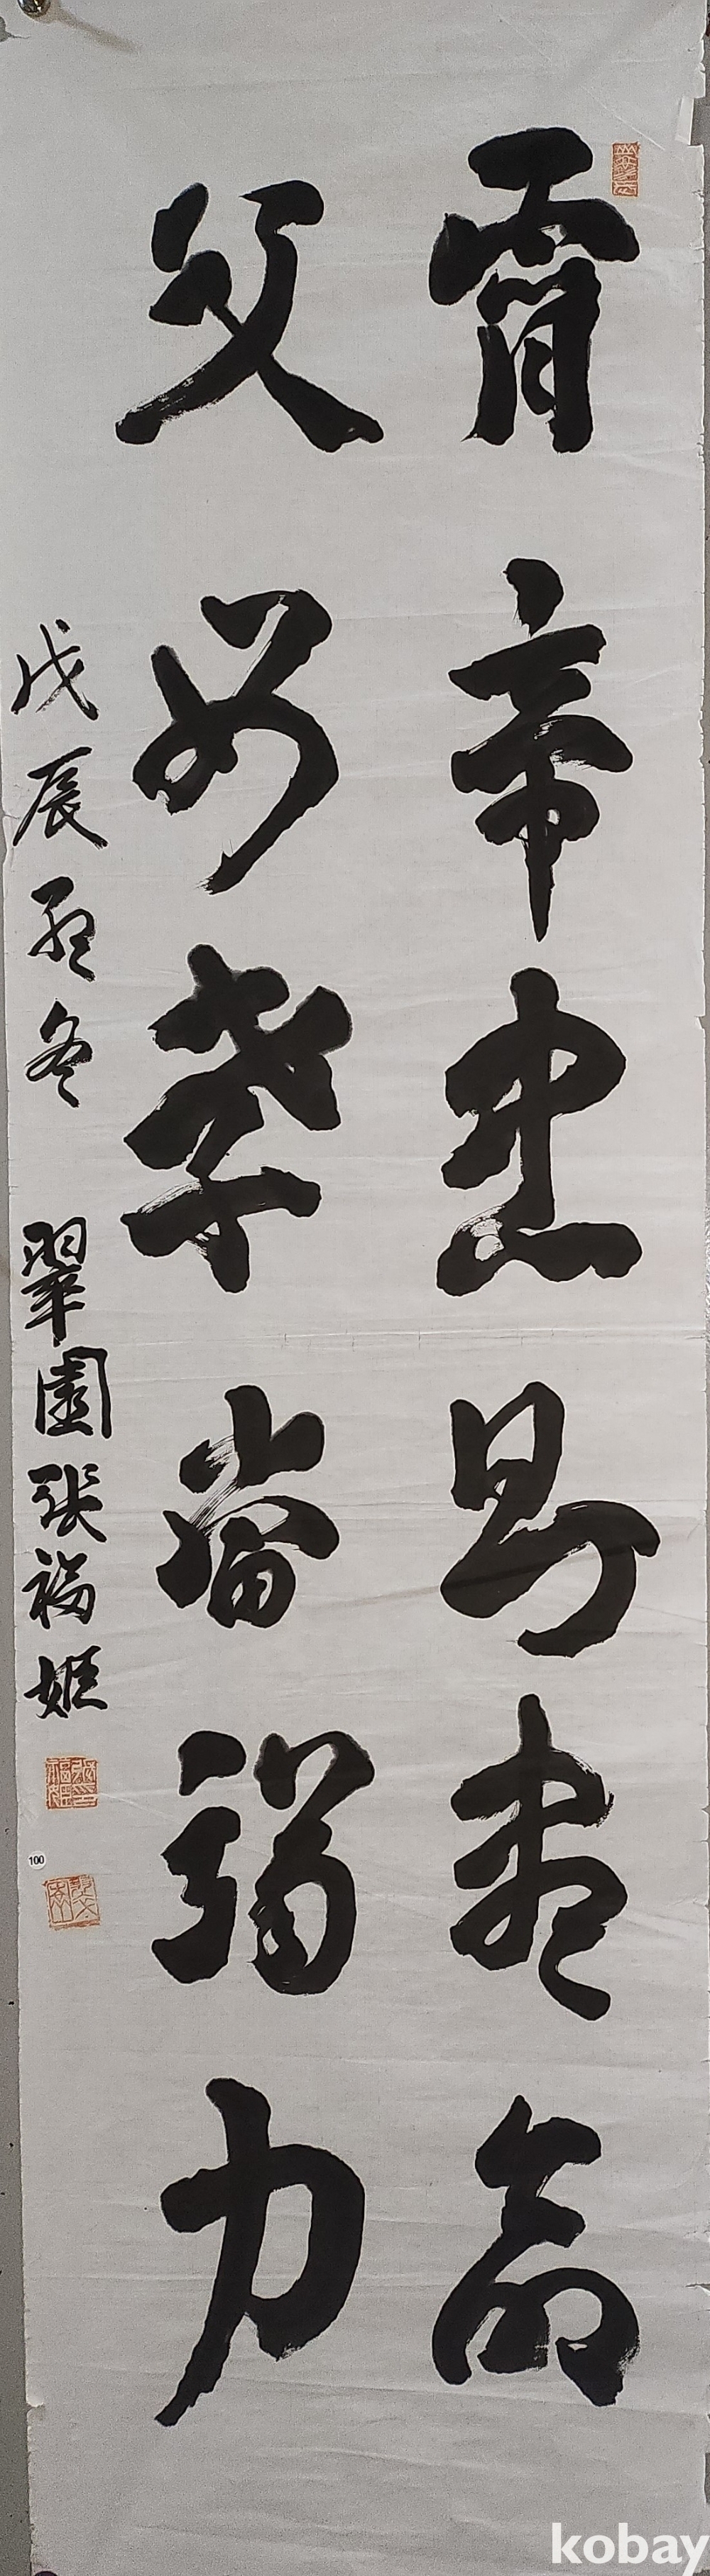 帝忠則盡命
父母孝當竭力
戊辰孟冬 翠園 張福姬
100
kobay